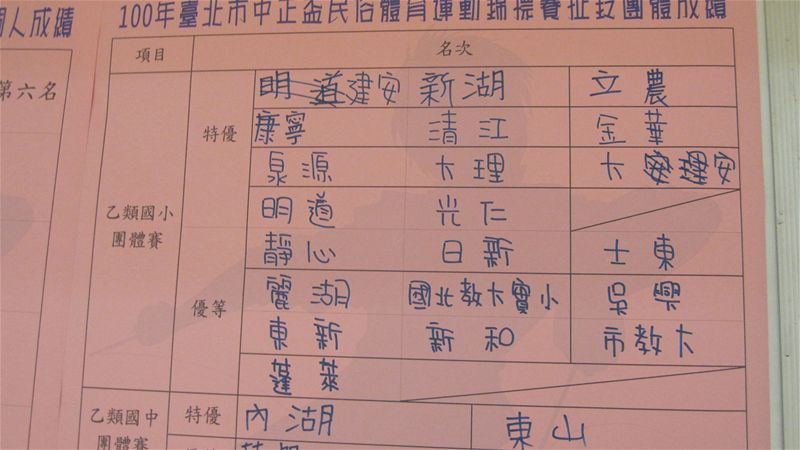 個人成績
100年臺北市中正盃民俗體育運動錦標賽扯鈴團體成績
第六名
項目 名次
乙類國小團體賽
特優
建安 新湖 立農
康寧 清江 金華
泉源 大理 大安
明道 光仁
優等
靜心 日新 士東
麗湖 國北教大實小 吳興
東新 新和 市教大
蓬萊
乙類國中團體賽
特優 內湖 東山